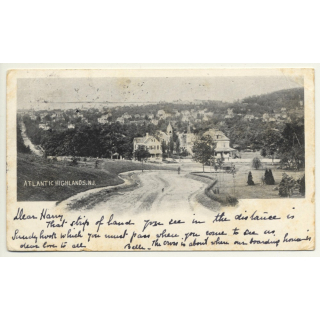 ATLANTIC HIGHLANDS, N.J.
Dear Harry,
That strip of land you see in the distance is
Sandy hook which you must pass when you come to see us.
love to all. Belle. The cross is about where our boarding house is